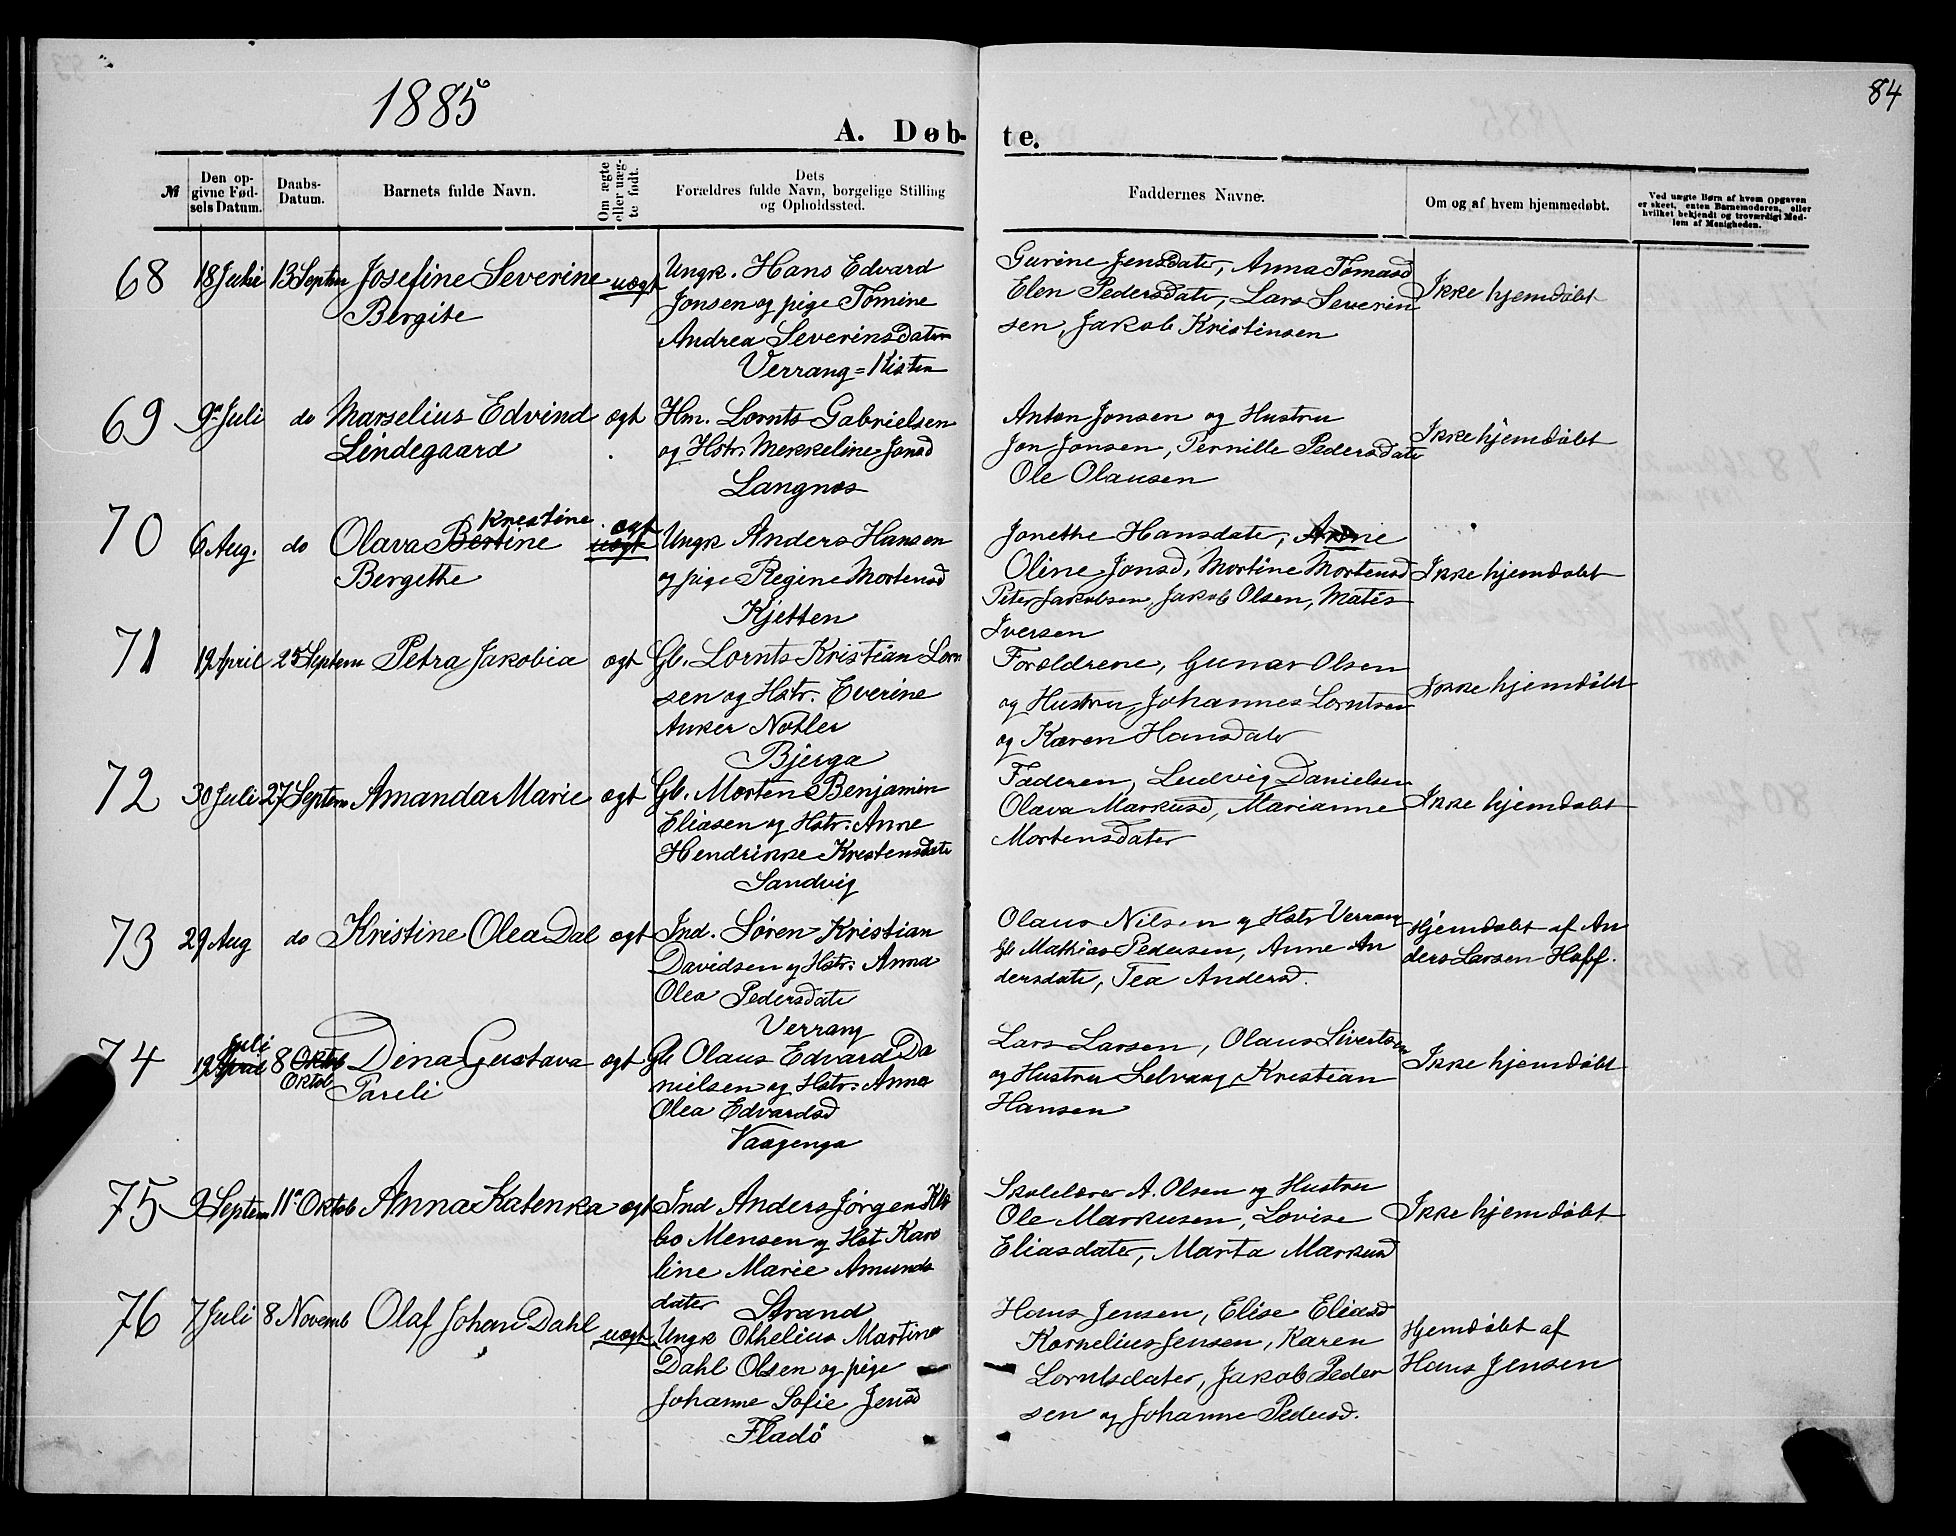 84
1885
A. Døb- te.
№
Den opgivne Fødsels Datum.
Daabs-Datum.
Barnets fulde Navn.
Om ægte eller uægte født.
Dets Forældres fulde Navn, borgelige Stilling og Opholdssted.
Faddernes Navne.
Om og af hvem hjemmedøbt.
Ved uægte Børn af hvem Opgaven er skeet, enten Barnemoderen, eller hvilket bekjendt og troværdigt Medlem af Menigheden.
68 18 Juli 13 Septem Josefine Severine uægt Ungk. Hans Edvard
Bergite
Jonsen og pige Tomine
Andrea Severinsdatter
Verrang=Kisten
Gurine Jensdater, Anna Tomasd
Elen Pedersdater, Lars Severin
sen, Jakob Kristinsen
Ikke hjemdøbt
69 9de Juli do Marselius Edvind ægt Hm. Lornts Gabrielsen
Lindegaard
og Hstr. Mekkeline Jonsd
Langnæs
Anton Jonsen og Hustru
Jon Jonsen, Pernille Pedersdater
Ole Olausen
Ikke hjemdøbt
70 6 Aug. do Olava Bertine Krestine uægt ægt Ungk Anders Hansen
Bergitte
og pige Regine Mortensd
Kjetten
Jonethe Hansdater, Arne
Oline Jonsd, Mortine Mortensd
Peter Jakobsen, Jakob Olsen, Matis
Iversen
Ikke hjemdøbt
71 12 April 25 Septem Petra Jakobia ægt Gb. Lornts Kristian Lorn
sen og Hstr. Everine
Anker Notler
Bjerga
Forældrene, Gunar Olsen
og Hustru, Johannes Lorntsen
og Karen Hansdater
Ikke hjemdøbt
72 30 Juli 27 Septem Amanda Marie ægt Gb. Morten Benjamin
Eliasen og Hstr. Anne
Hendrikke Krestensdatr
Sandvig
Faderen, Ludvig Danielsen
Olava Markusd, Marianne
Mortensdater
Ikke hjemdøbt
73 29 Aug do Kristine Olea Dal ægt Ind. Søren Kristian
Davidsen og Hstr. Anna
Olea Pedersdatr
Verrang
Olaus Nilsen og Hstr Verran
Gb Mathias Pedersen, Anne An
dersdatr, Tea Andersd.
Hjemdøbt af An
ders Larsen Hoff.
74 12 April Juli 8 Oktob Oktob Dina Gustava ægt Gb Olaus Edvard Da
Pareli
nielsen og Hstr. Anna
Olea Edvardsd
Vaagenga
Lars Larsen, Olaus Sivertsen
og Hustru Selvaag, Kristian
Hansen
Ikke hjemdøbt
75 9 Septem 11te Oktob Anna Katenka ægt Ind Anders Jørgen Kle
bo Mensen og Hst Karo
line Marie Amunds
dater Strand
Skolelærer A. Olsen og Hustru
Ole Markusen, Lovise
Eliasdater, Marta Markusd
Ikke hjemdøbt
76 7 Juli 8 Novemb Olaf Johan Dahl uægt Ungk Othelius Martinø
Dahl Olsen og pige
Johanne Sofie Jensd
Fladö
Hans Jensen, Elise Eliasd
Kornelius Jensen, Karen
Lorntsdater, Jakob Peder
sen og Johanne Pedersd.
Hjemdøbt af
Hans Jensen